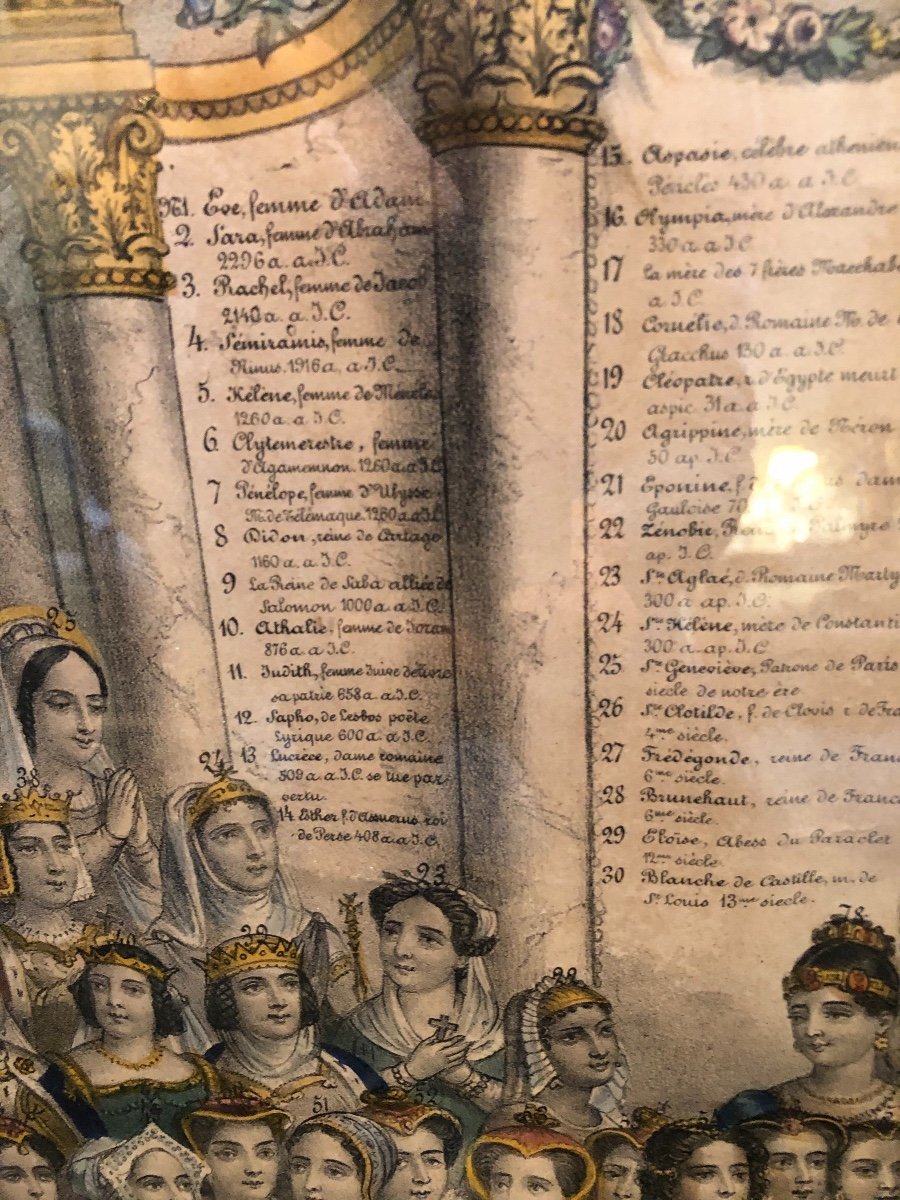 №1. Eve, femme d'Adam
2. Sara, femme d'Abraham
2296 a. a. J.C.
3. Rachel, femme de Jacob
2140 a. a. J.C.
4. Sémiramis, femme de
Ninus. 1916 a, a J.C.
5. Hélène, femme de Ménélas
1260 a. a J.C.
6 Clytemerestre, femme
d'Agamemnon. 1260 a. a J.C
7 Pénélope, femme d'Ulysse
M. de Télémaque. 1260 a. a J.C
8 Didon, reine de Cartage
1160 a. a J.C.
9 La Reine de Saba alliée de
Salomon 1000 a. a J.C.
10. Athalie, femme de Joram
876 a. a J.C.
11. Judith, femme Juive
sa patrie 658 a. a J.C.
12. Sapho, de Lesbos poëte
Lyrique 600 a. a J.C.
13 Lucrèce, dame romaine
509 a. a J.C. se tue par
vertu.
14 Esther f. d'Assuerus roi
de Perse 408 a. a J.C.
15. Aspasie, célèbre
Périclès 430 a. a J.C.
16. Olympia, mère d'Alexandre
330 a. a J.C.
17 La mère des 7 frères
a J.C.
18 Cornélie, d. Romaine M. de
Gracchus 130 a. a J.C.
19 Cléopatre, r. d'Egypte meurt
aspic 31 a. a J.C.
20 Agrippine, mère de Néron
50 ap. J.C.
21 Eponine, f.
Gauloise J.C.
22 Zénobie,
ap. J.C.
23 Ste Aglaé, d. Romaine
300 a ap. J.C.
24 Ste Hélène, mère de
300 a. ap. J.C.
25 Ste Geneviève, Patrone de Paris
siècle de notre ère
26 Ste Clotilde, f. de Clovis r. de
4me siècle.
27 Frédégonde, reine de
6me siècle.
28 Brunehaut, reine de France
6me siècle.
29 Eloïse, Abess du Paraclet
12me siècle.
30 Blanche de Castille, m. de
St Louis 13me siècle.
25
24
38
23
78
40
39
29
51
52